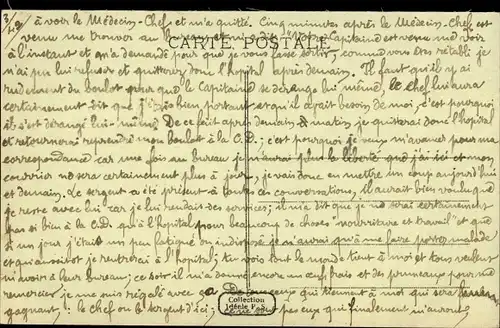 3/ à voir le Médecin-Chef et m'a quitté. Cinq minutes après le Médecin-Chef est
venu me trouver au bureau et m'a dit "Votre Capitaine est venu me voir
CARTE POSTALE
à l'instant et m'a demandé pour que je vous fasse sortir, comme vous êtes rétabli je
n'ai pu lui refuser et quitterez donc l'hôpital après demain. Il faut qu'il y ai
rudement du boulot pour que le Capitaine se dérange lui même, le chef lui aura
certainement dit que j'étais bien portant et qu'il avait besoin de moi, c'est pourquoi
il s'est dérangé lui-même. De ce fait après demain matin je quitterai donc l'hôpital
et retournerai reprendre mon boulot à la C.D.; c'est pourquoi je veux m'avancer pour ma
correspondance car une fois au bureau je n'aurai plus la liberté que j'ai ici et mon
courrier ne sera certainement plus à jour, je vais donc en mettre un coup aujourd'hui
et demain. Le sergent a été présent à toutes ces conversations, il aurait bien voulu que
je reste avec lui car je lui rendais des services; il m'a dit que je ne serai certainement
pas si bien à la C.D. qu'à l'hôpital pour beaucoup de choses "nourriture et travail" et que
si un jour j'étais un peu fatigué ou indisposé je n'aurai qu'à me faire porter malade
et qu'aussitôt je rentrerai à l'hôpital; tu vois tout le monde tient à moi et tous veulent
m'avoir à leur bureau; ce soir il m'a donné encore un œuf frais et des pruneaux pour me
remercier, je me suis régalé avec ça. De tous ceux qui tiennent à moi qui sera
gagnant: le chef ou le sergent d'ici; ce ne sont pas eux qui finalement m'auront
Collection